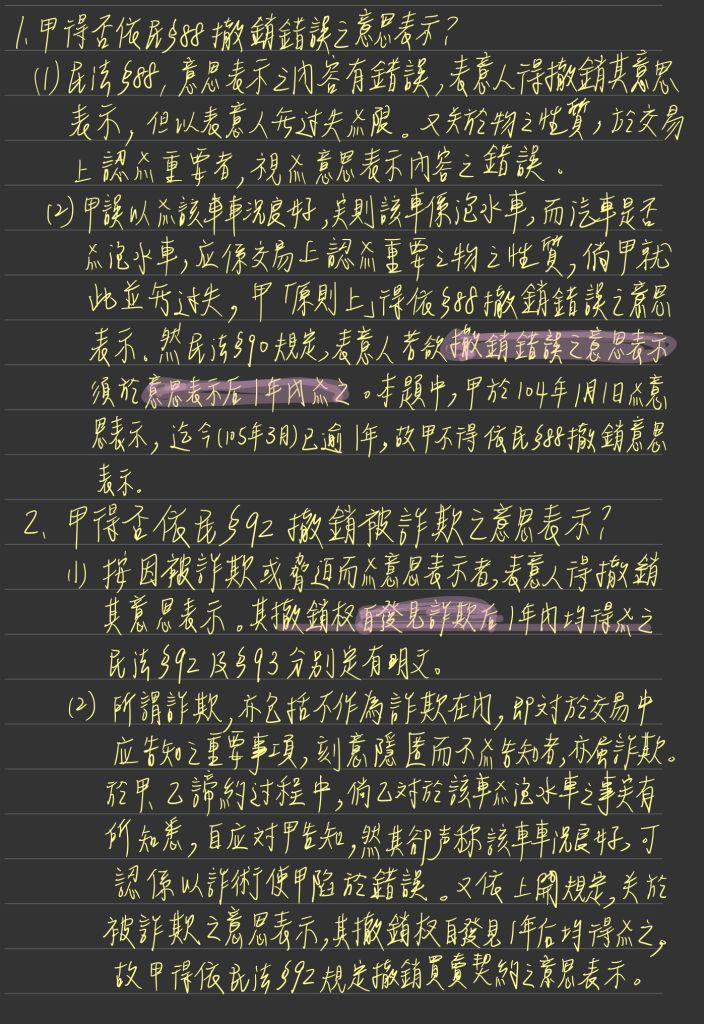 1.甲得否依民§88撤銷錯誤之意思表示？
(1)民法§88，意思表示之內容有錯誤，表意人得撤銷其意思
表示，但以表意人无过失為限。又关於物之性質，於交易
上認為重要者，視為意思表示內容之錯誤。
(2)甲誤以為該車車況良好，实則該車係泡水車，而汽車是否
為泡水車，应係交易上認為重要之物之性質，倘甲就
此並无过失，甲「原則上」得依§88撤銷錯誤之意思
表示。然民法§90規定，表意人若欲撤銷錯誤之意思表示
須於意思表示后1年內為之。本題中，甲於104年1月1日為意
思表示，迄今(105年3月)已逾1年，故甲不得依民§88撤銷意思
表示。
2、甲得否依民§92撤銷被詐欺之意思表示？
(1)按因被詐欺或脅迫而為意思表示者，表意人得撤銷
其意思表示。其撤銷权自發見詐欺后1年內均得為之
民法§92及§93分別定有明文。
(2)所謂詐欺，亦包括不作為詐欺在內，即对於交易中
应告知之重要事項，刻意隱匿而不為告知者，亦屬詐欺。
於甲、乙諦約过程中，倘乙对於該車為泡水車之事实有
所知悉，自应对甲告知，然其卻声称該車車況良好，可
認係以詐術使甲陷於錯誤。又依上開規定，关於
被詐欺之意思表示，其撤銷权自發見1年后均得為之，
故甲得依民法§92規定撤銷買賣契約之意思表示。